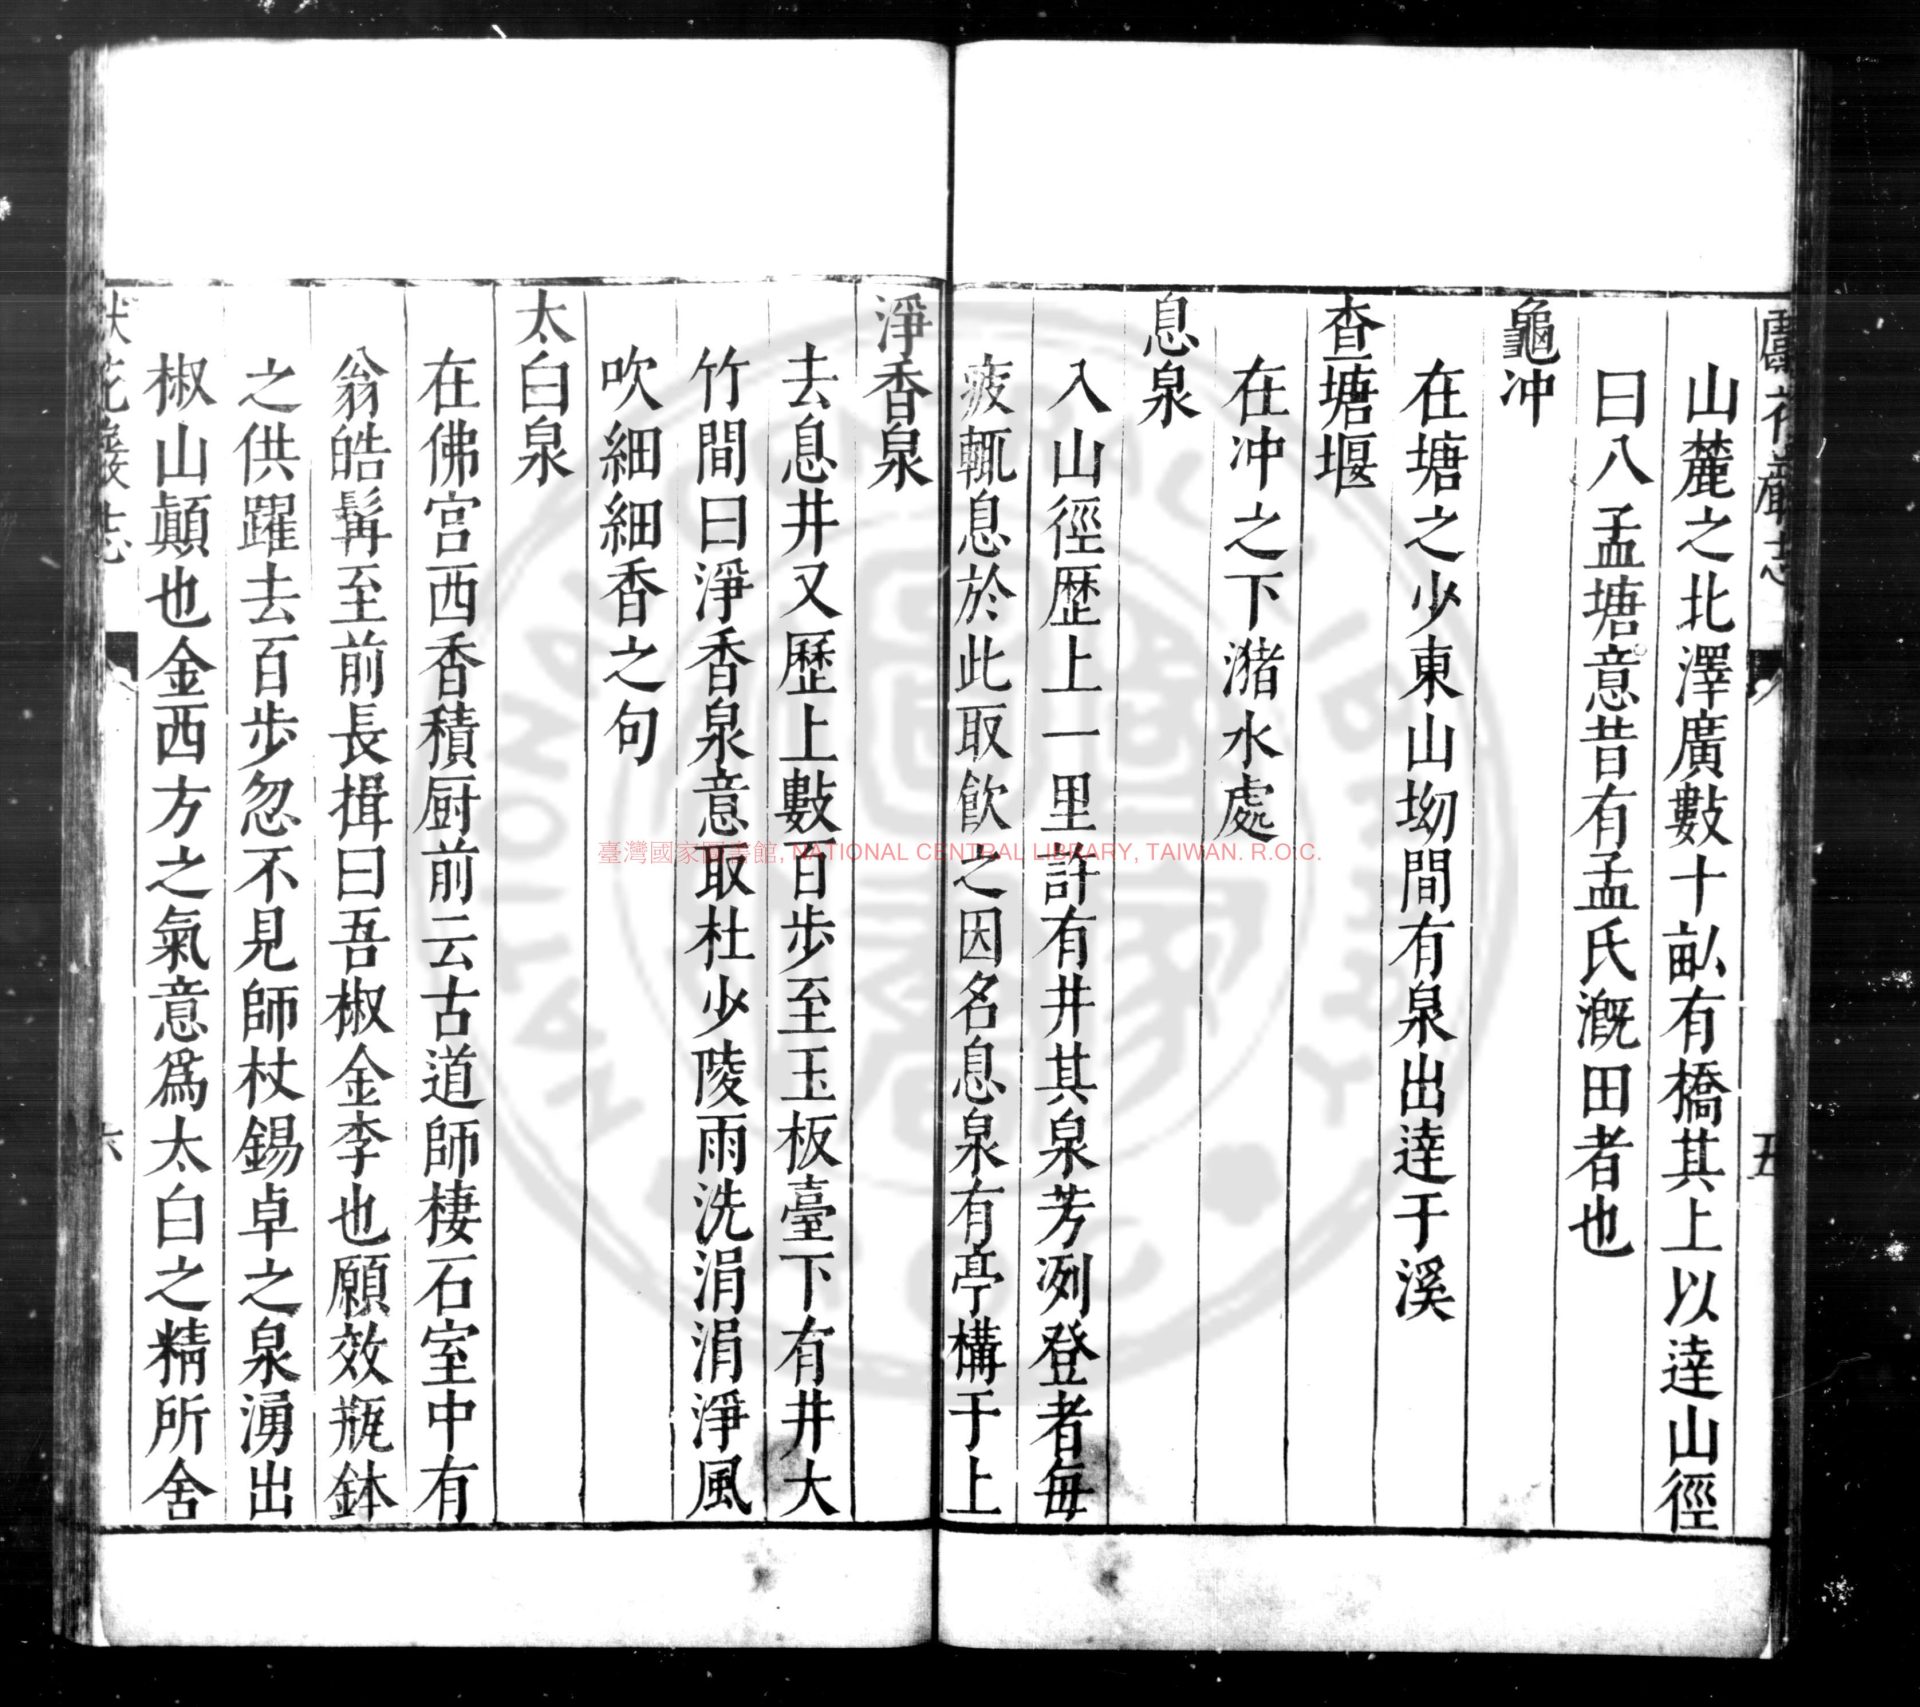 山麓之北澤廣數十畆有橋其上以逹山徑
曰八孟塘意昔有孟氏漑田者也
龜冲
在塘之少東山坳間有泉出逹于溪
查塘堰
在冲之下潴水處
息泉
入山徑歴上一里許有井其泉芳冽登者每
疲輒息於此取飲之因名息泉有亭構于上
淨香泉
去息井又歷上數百步至玉板臺下有井大
竹間曰淨香泉意取杜少陵雨洗涓涓淨風
吹細細香之句
太白泉
在佛宫西香積厨前云古道師棲石室中有
翁皓髯至前長揖曰吾椒金李也願效瓶鉢
之供躍去百步忽不見師杖錫卓之泉湧出
椒山顛也金西方之氣意爲太白之精所舍
六
五
臺灣國家圖書館, NATIONAL CENTRAL LIBRARY, TAIWAN. R.O.C.